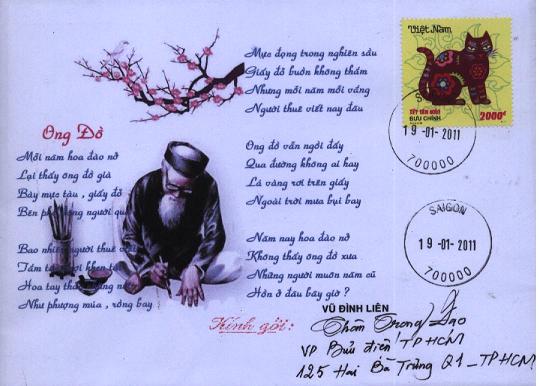 Ông Đồ
Mỗi năm hoa đào nở
Lại thấy ông đồ già
Bày mực tàu, giấy đỏ
Bên phố đông người qua
Bao nhiêu người thuê viết
Tấm tắc ngợi khen tài
Hoa tay thảo những nét
Như phượng múa, rồng bay
Mực đọng trong nghiên sầu
Giấy đỏ buồn không thắm
Nhưng mỗi năm mỗi vắng
Người thuê viết nay đâu
Ông đồ vẫn ngồi đấy
Qua đường không ai hay
Lá vàng rơi trên giấy
Ngoài trời mưa bụi bay
Năm nay hoa đào nở
Không thấy ông đồ xưa
Những người muôn năm cũ
Hồn ở đâu bây giờ ?
VŨ ĐÌNH LIÊN
Việt Nam
TẾT TÂN MÃO
BƯU CHÍNH
2000đ
19-01-2011
700000
SAIGON
19-01-2011
700000
Kính gởi :
Trọng
VP Bưu điện TPHCM
125 Hai Bà Trưng Q1_TPHCM